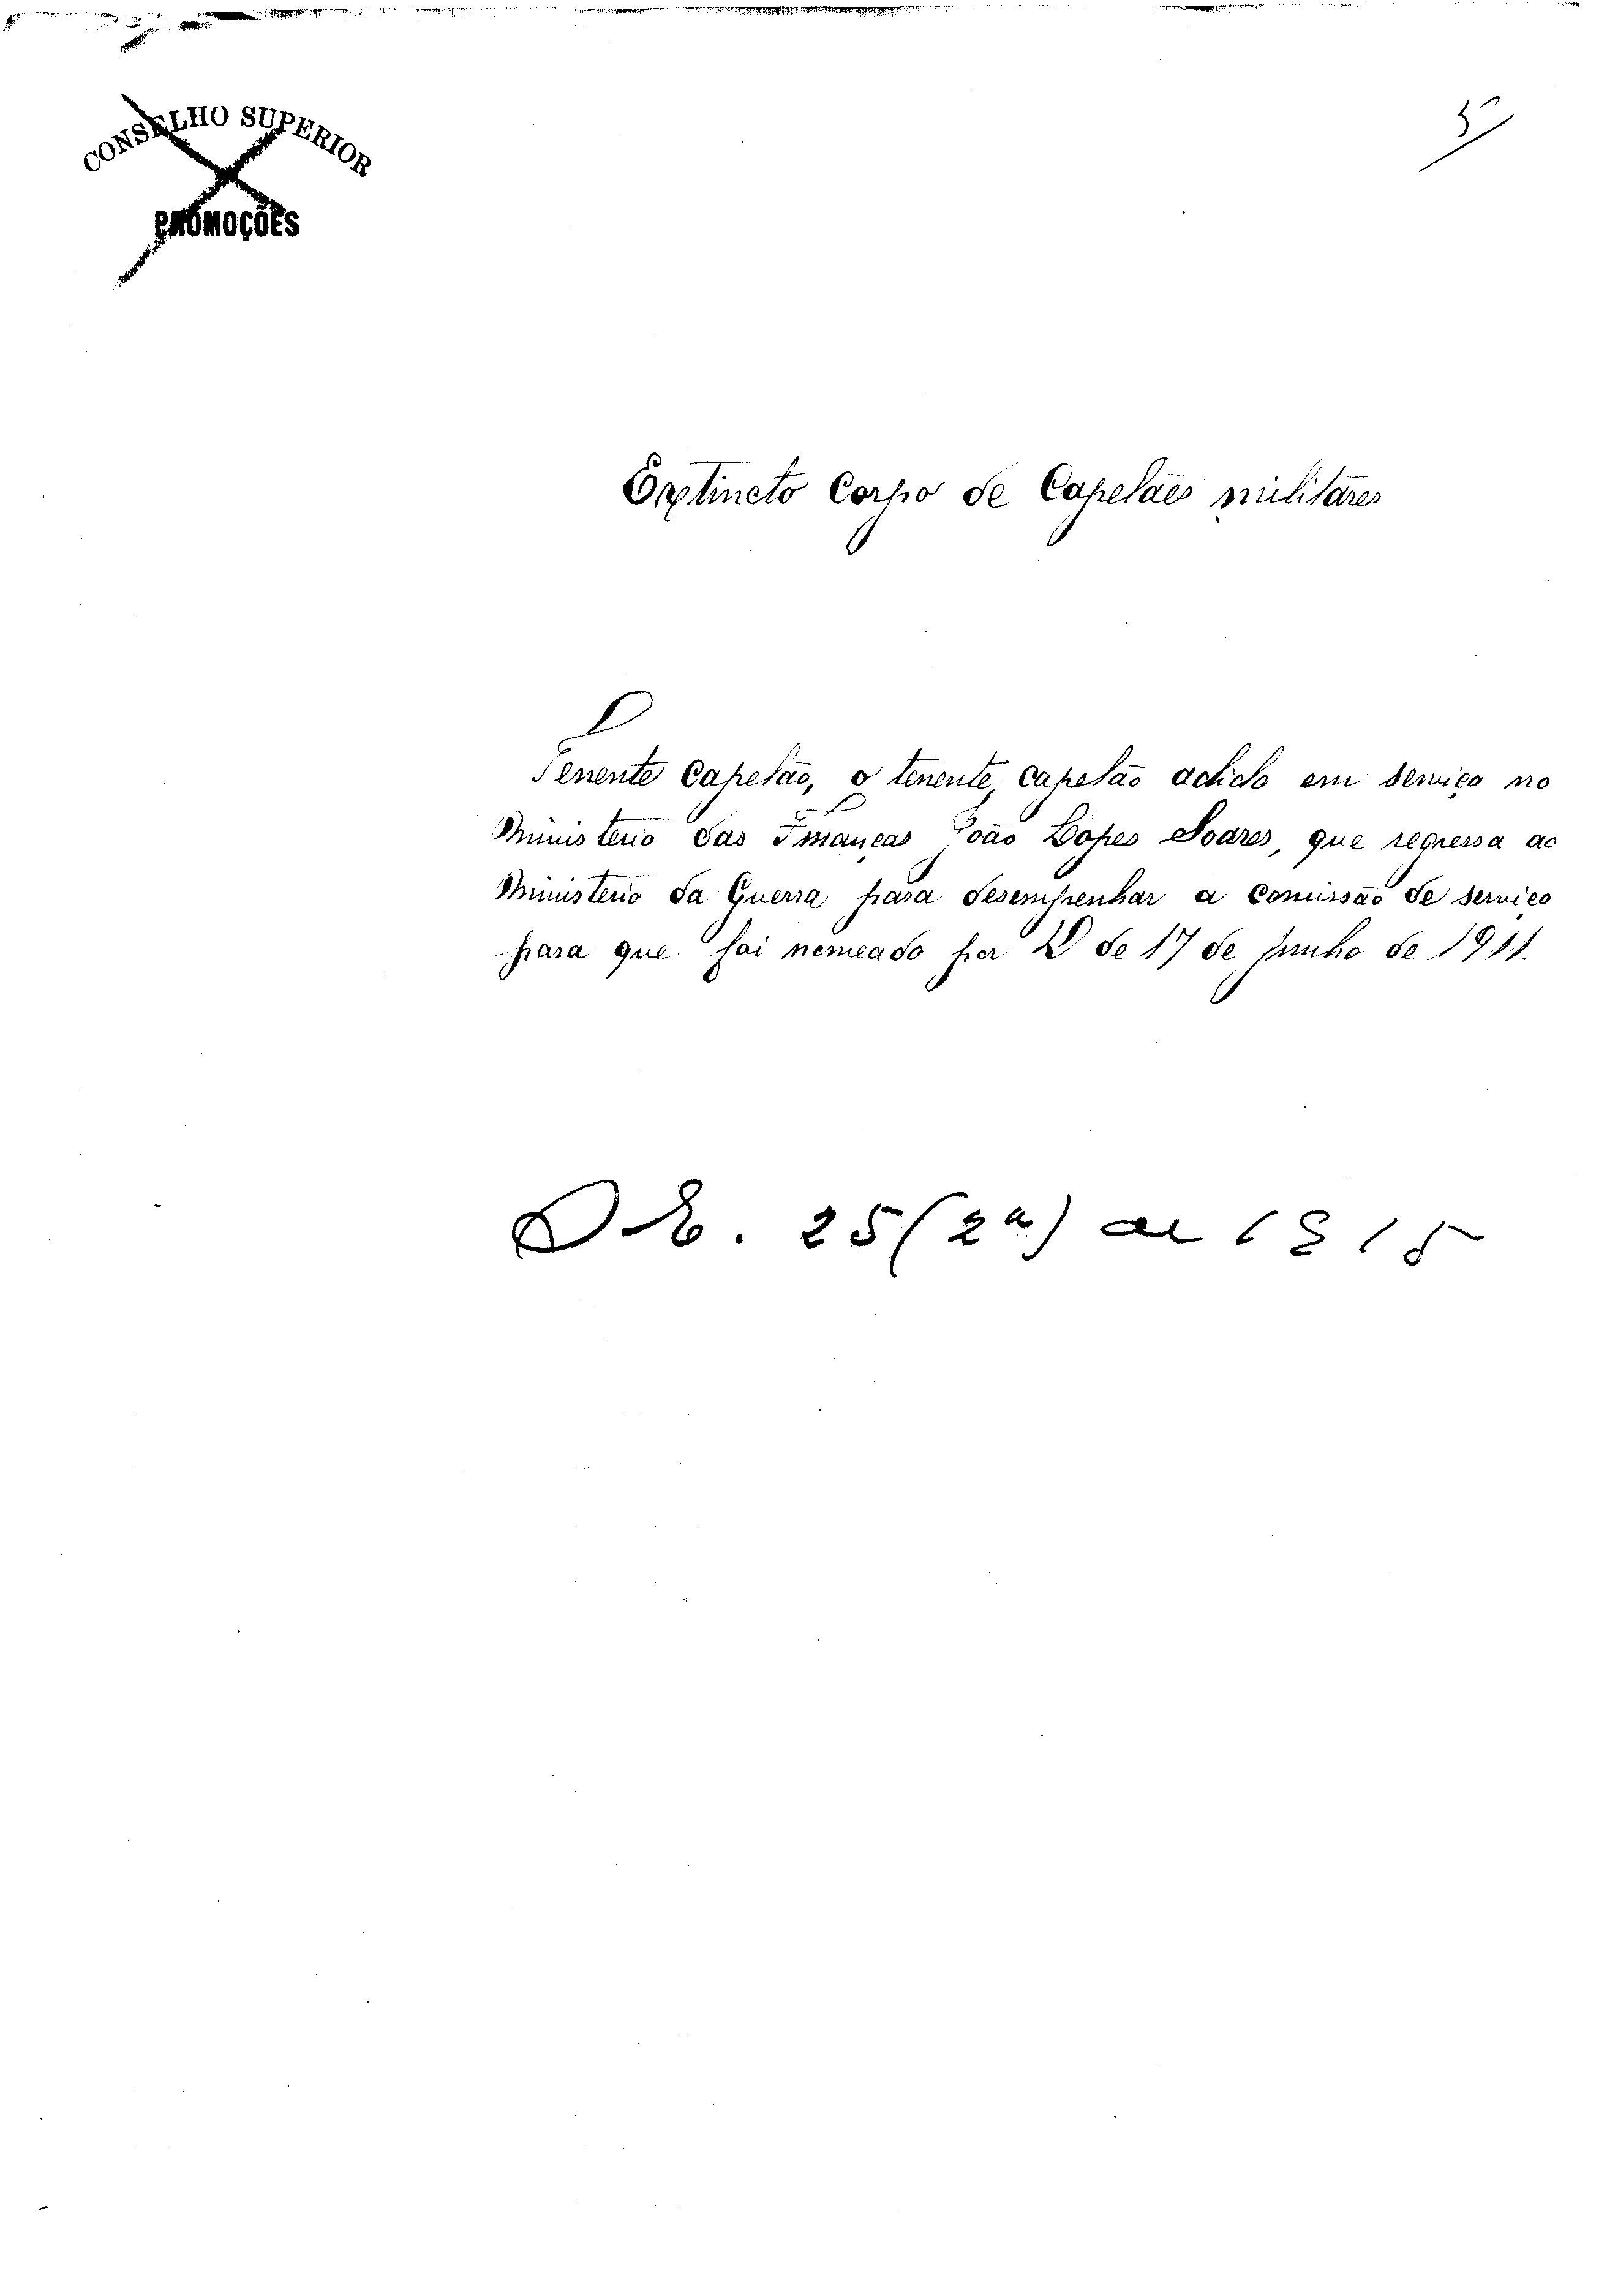 CONSELHO SUPERIOR
PROMOÇÕES
5
Extincto Corpo de Capelães militares
Tenente Capelão, o tenente capelão adido em serviço no
Ministerio das Finanças João Lopes Soares, que regressa ao
Ministerio da Guerra para desempenhar a comissão de serviço
para que foi nomeado por D de 17 de Junho de 1911.
O E. 25 (2ª) de 1915